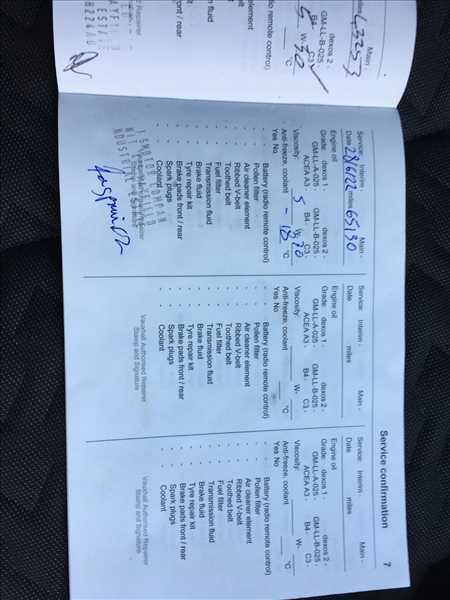 Main -
miles 43253
dexos 2 -
GM-LL-B-025 -
B4 - C3 -
5 W- 30
°C
(radio remote control)
filter
cleaner element
V-belt
belt
filter
Transmission fluid
Service confirmation 7
Service: Interim - Main -
Date 28/6/22 miles 65130
Engine oil
Grade: dexos 1 - dexos 2 -
GM-LL-A-025 - GM-LL-B-025 -
ACEA A3 - B4 - C3 -
Viscosity: 5 W-
Anti-freeze, coolant - 18 °C
Yes No
- - Battery (radio remote control)
- - Pollen filter
- - Air cleaner element
- - Ribbed V-belt
- - Toothed belt
- - Fuel filter
- - Transmission fluid
- - Brake fluid
- - Tyre repair kit
- - Brake pads front / rear
- - Spark plugs
- - Coolant
Service: Interim - Main -
Date miles
Engine oil
Grade: dexos 1 - dexos 2 -
GM-LL-A-025 - GM-LL-B-025 -
ACEA A3 - B4 - C3 -
Viscosity: W-
Anti-freeze, coolant °C
Yes No
- - Battery (radio remote control)
- - Pollen filter
- - Air cleaner element
- - Ribbed V-belt
- - Toothed belt
- - Fuel filter
- - Transmission fluid
- - Brake fluid
- - Tyre repair kit
- - Brake pads front / rear
- - Spark plugs
- - Coolant
Vauxhall Authorised Repairer
Stamp and Signature
Service: Interim - Main -
Date miles
Engine oil
Grade: dexos 1 - dexos 2 -
GM-LL-A-025 - GM-LL-B-025 -
ACEA A3 - B4 - C3 -
Viscosity: W-
Anti-freeze, coolant °C
Yes No
- - Battery (radio remote control)
- - Pollen filter
- - Air cleaner element
- - Ribbed V-belt
- - Toothed belt
- - Fuel filter
- - Transmission fluid
- - Brake fluid
- - Tyre repair kit
- - Brake pads front / rear
- - Spark plugs
- - Coolant
Vauxhall Authorised Repairer
Stamp and Signature